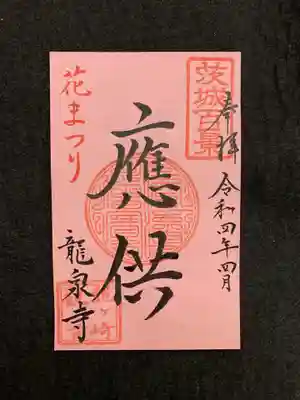 茨城百景
奉拝 令和四年四月
應供
花まつり
龍泉寺
龍ヶ崎